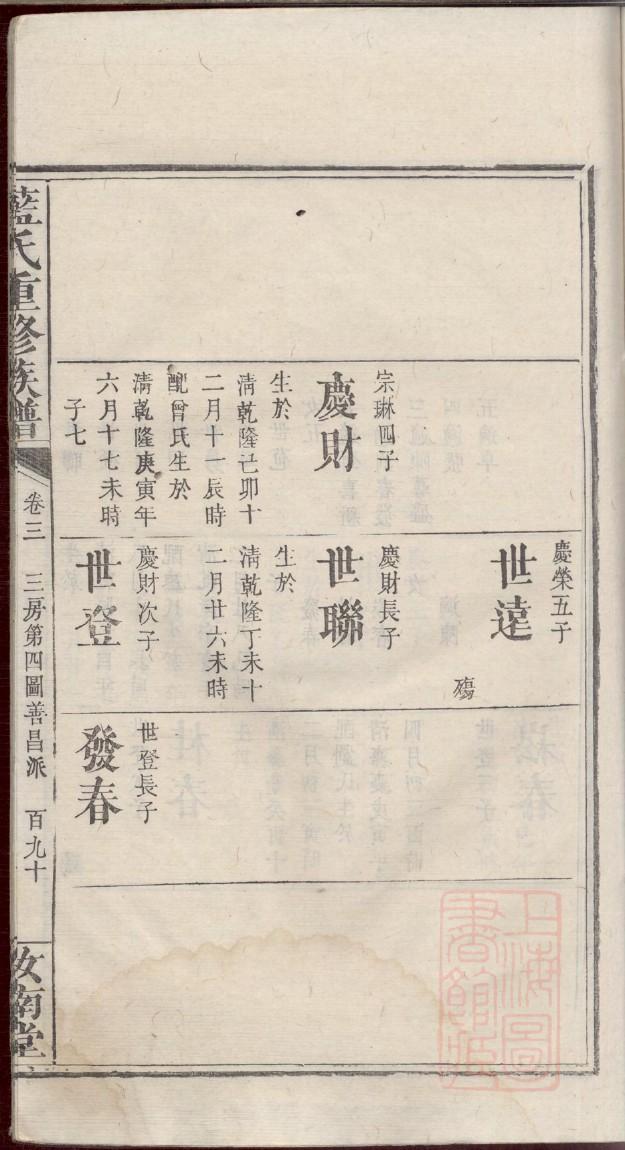 慶榮五子
世遠
殤
宗琳四子
慶財
生於
清乾隆己卯十
二月十一辰時
配曾氏生於
清乾隆庚寅年
六月十七未時
子七
慶財長子
世聯
生於
清乾隆丁未十
二月廿六未時
慶財次子
世登
世登長子
發春
藍氏重修族譜
卷三
三房第四圖善昌派
百九十
汝南堂
上海圖
書館藏